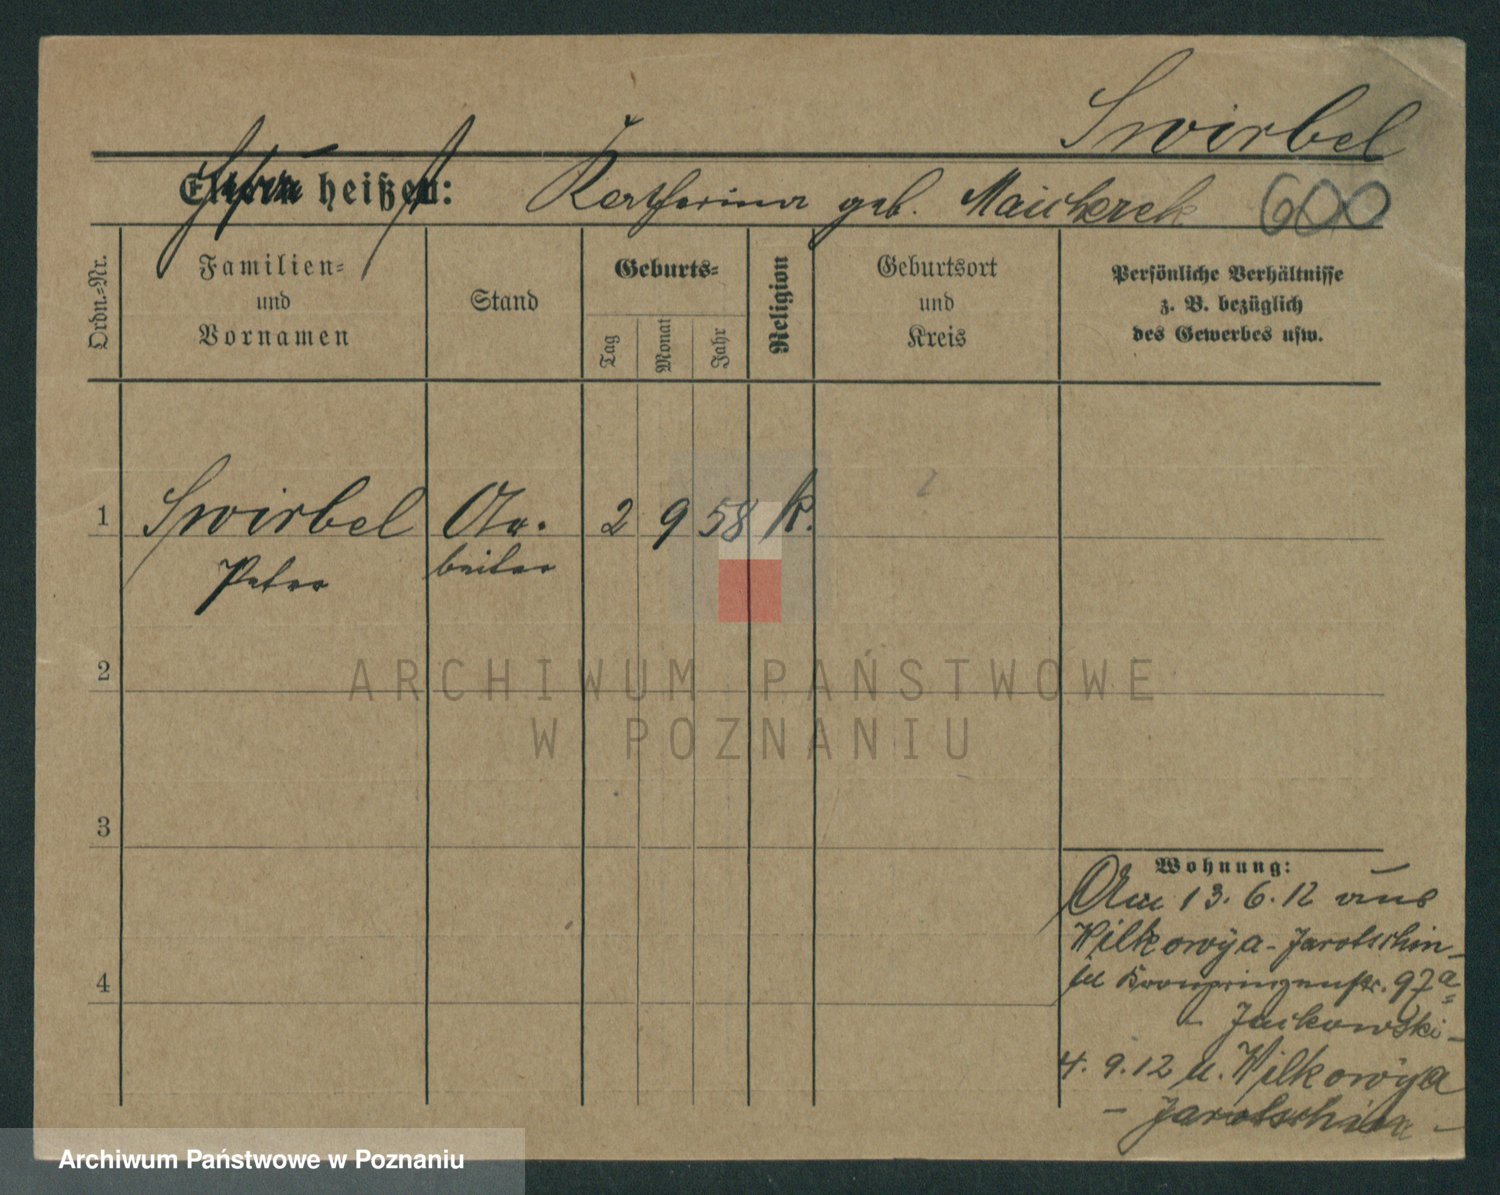 Swirbel
Eltern heißen: Katharina geb. Maichrzek 600
Ordn.-Nr.
Familien-
und
Vornamen
Stand
Geburts-
Tag
Monat
Jahr
Religion
Geburtsort
und
Kreis
Persönliche Verhältnisse
z. B. bezüglich
des Gewerbes usw.
1 Swirbel Ar- 2 9 58 k.
Peter beiter
2
3
4
Wohnung:
Am 13. 6. 12 aus
Wilkowÿa - Jarotschin -
Kronprinzenstr. 97a
- Jackowski -
4. 9. 12 n. Wilkowÿa
- Jarotschin -
ARCHIWUM PAŃSTWOWE
W POZNANIU
Archiwum Państwowe w Poznaniu